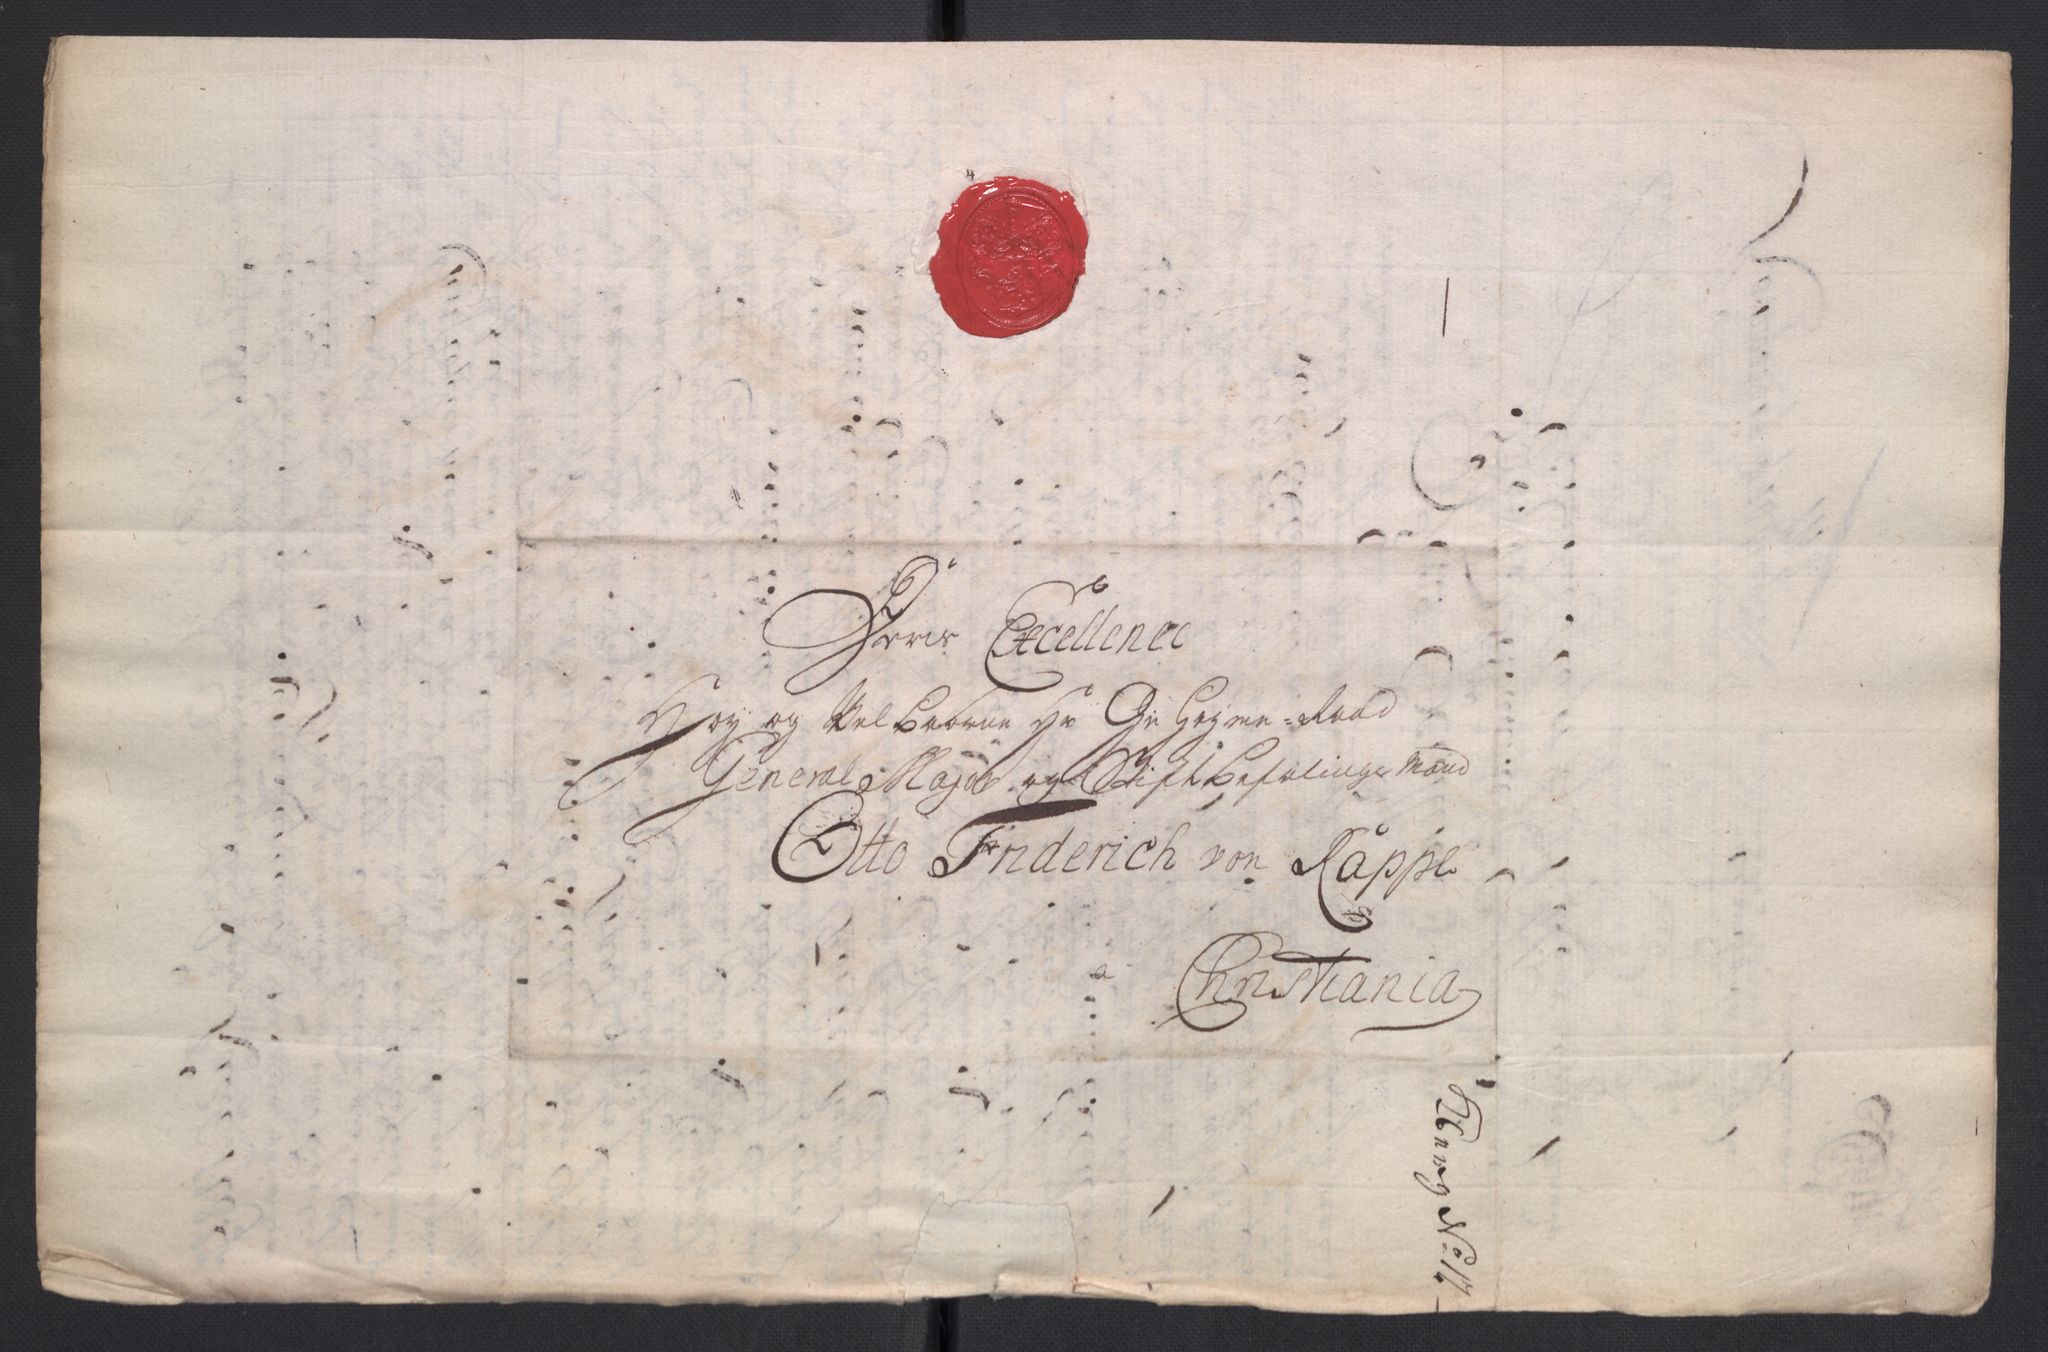 Deris Excellence
Høy og Velbaarne Hr Geheyme-Raad
General Major og StiftBefalings Mand
Otto Friderich von Rappe
Christiania
No: 12